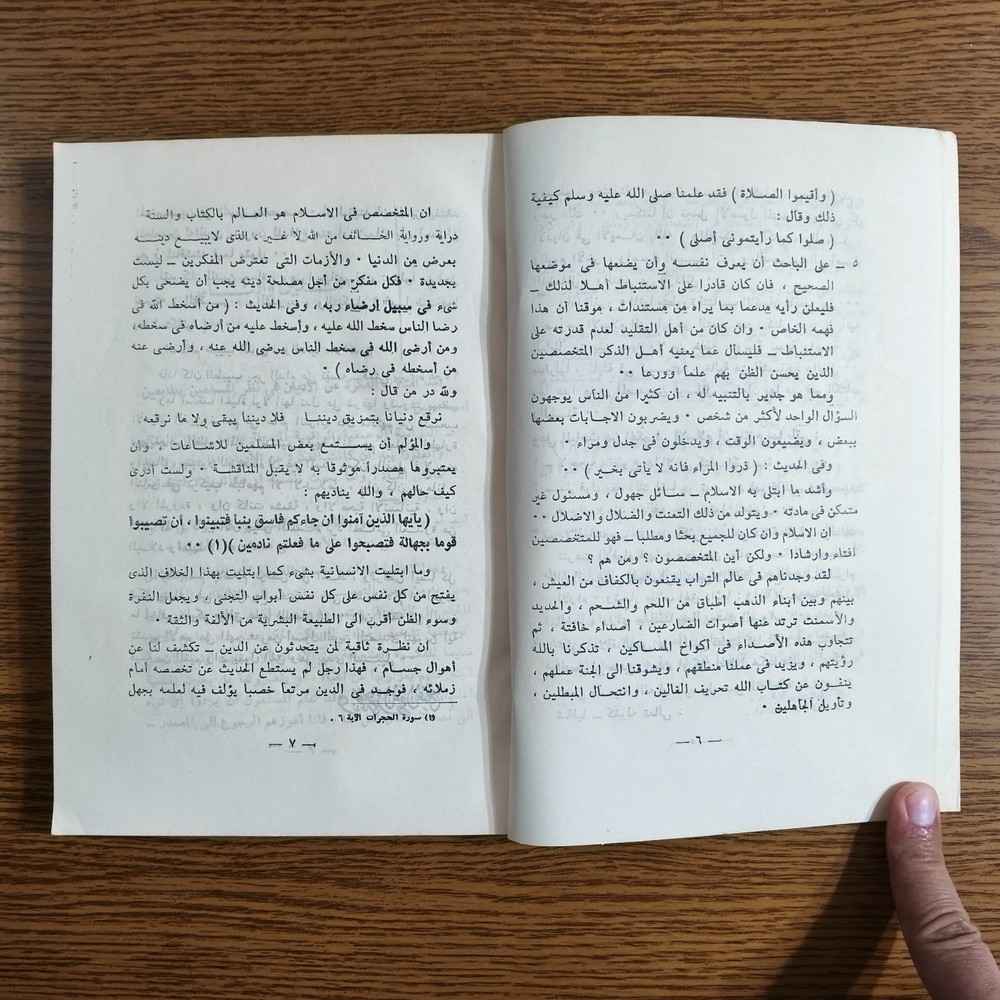 ( وأقيموا الصلاة ) فقد علمنا صلى الله عليه وسلم كيفية
ذلك وقال :
( صلوا كما رأيتمونى أصلى ) ٠٠
٥ ــ على الباحث أن يعرف نفسه وأن يضعها فى موضعها
الصحيح ، فان كان قادرا على الاستنباط أهلا لذلك ــ
فليعلن رأيه مدعما بما يراه من مستندات ، موقنا أن هذا
فهمه الخاص ٠ وان كان من أهل التقليد لعدم قدرته على
الاستنباط ــ فليسأل عما يعنيه أهل الذكر المتخصصين
الذين يحسن الظن بهم علما وورعا ٠٠
ومما هو جدير بالتنبيه له ، أن كثيرا من الناس يوجهون
السؤال الواحد لأكثر من شخص ٠ ويضربون الاجابات بعضها
ببعض ، ويضيعون الوقت ، ويدخلون فى جدل ومراء ٠
وفى الحديث : ( ذروا المراء فانه لا يأتى بخير ) ٠٠
وأشد ما ابتلى به الاسلام ــ سائل جهول ، ومسئول غير
متمكن فى مادته ٠ ويتولد من ذلك التعنت والضلال والاضلال ٠٠
ان الاسلام وان كان للجميع بحثا ومطلبا ــ فهو للمتخصصين
افتاء وارشادا ٠ ولكن أين المتخصصون ؟ ومن هم ؟
لقد وجدناهم فى عالم التراب يقنعون بالكفاف من العيش ،
بينهم وبين أبناء الذهب أطباق من اللحم والشحم ، والحديد
والأسمنت ترتد عنها أصوات الضارعين ، أصداء خافتة ، ثم
تتجاوب هذه الأصداء فى أكواخ المساكين ، تذكرنا بالله
رؤيتهم ، ويزيد فى عملنا منطقهم ، ويشوقنا الى الجنة عملهم ،
ينفون عن كتاب الله تحريف الغالين ، وانتحال المبطلين ،
وتأويل الجاهلين ٠
ــ ٦ ــ
ان المتخصص فى الاسلام هو العالم بالكتاب والسنة
دراية ورواية الخائف من الله لا غير ، الذى لايبيع دينه
بعرض من الدنيا ٠ والأزمات التى تعترض المفكرين ــ ليست
بجديدة ٠ فكل مفكر من أجل مصلحة دينه يجب أن يضحى بكل
شىء فى سبيل ارضاء ربه ، وفى الحديث : ( من أسخط الله فى
رضا الناس سخط الله عليه ، وأسخط عليه من أرضاه فى سخطه،
ومن أرضى الله فى سخط الناس يرضى الله عنه ، وأرضى عنه
من أسخطه فى رضاه ) ٠
ولله در من قال :
نرقع دنيانا بتمزيق ديننا فلا ديننا يبقى ولا ما نرقعه
والمؤلم أن يستمع بعض المسلمين للاشاعات ، وان
يعتبروها مصدرا موثوقا به لا يقبل المناقشة ٠ ولست أدرى
كيف حالهم ، والله يناديهم :
( يأيها الذين آمنوا ان جاءكم فاسق بنبا فتبينوا ، ان تصيبوا
قوما بجهالة فتصبحوا على ما فعلتم نادمين )(١) ٠٠
وما ابتليت الانسانية بشىء كما ابتليت بهذا الخلاف الذى
يفتح من كل نفس على كل نفس أبواب التجنى ، ويجعل النفرة
وسوء الظن أقرب الى الطبيعة البشرية من الألفة والثقة ٠
ان نظرة ثاقبة لمن يتحدثون عن الدين ــ تكشف لنا عن
أهوال جسام ، فهذا رجل لم يستطع الحديث عن تخصصه أمام
زملائه ، فوجد فى الدين مرتعا خصبا يؤلف فيه لعلمه بجهل
(١) سورة الحجرات الآية ٦ ٠
ــ ٧ ــ